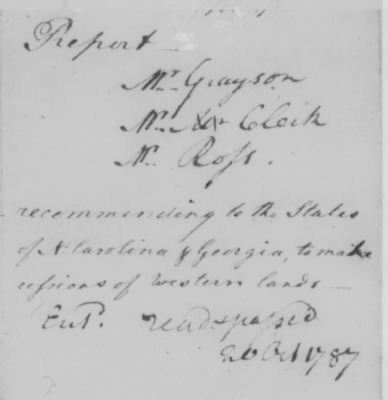 Report —
Mr. Grayson
Mr. Clark
Mr. Ross.
recommending to the States
of N. Carolina & Georgia, to make
cessions of western lands —
Ent. read & passed
20 Oct 1787